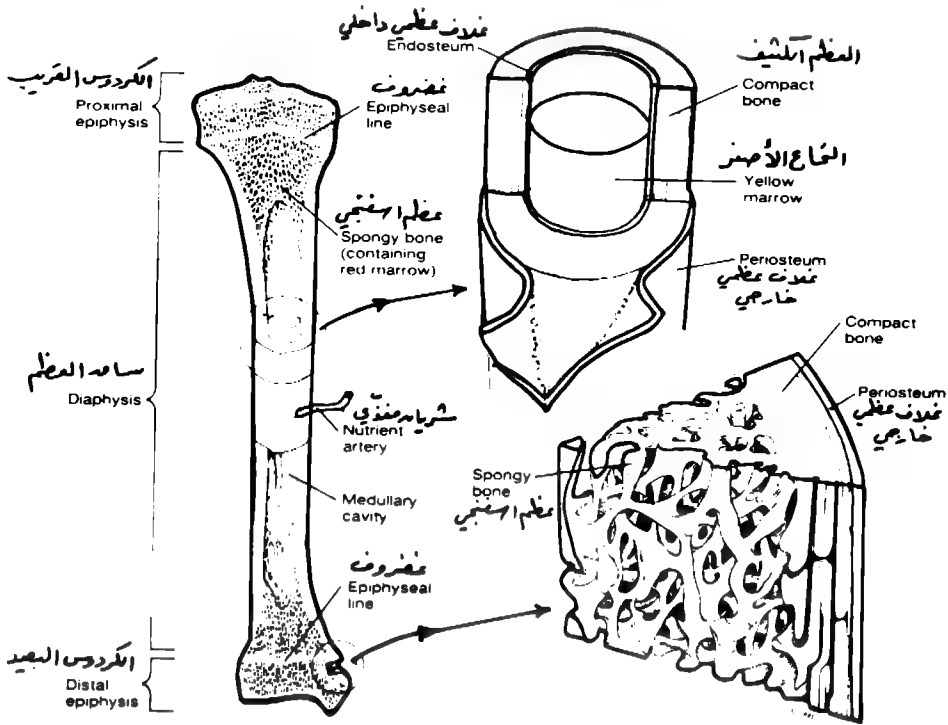 الكردوس القريب
Proximal
epiphysis
غضروف
Epiphyseal
line
عظم اسفنجي
Spongy bone
(containing
red marrow)
ساعد العظم
Diaphysis
شريان مغذي
Nutrient
artery
Medullary
cavity
غضروف
Epiphyseal
line
الكردوس البعيد
Distal
epiphysis
غلاف عظمي داخلي
Endosteum
العظم الكثيف
Compact
bone
النخاع الأصفر
Yellow
marrow
Periosteum
غلاف عظمي
خارجي
Compact
bone
Periosteum
غلاف عظمي
خارجي
Spongy
bone
عظم اسفنجي